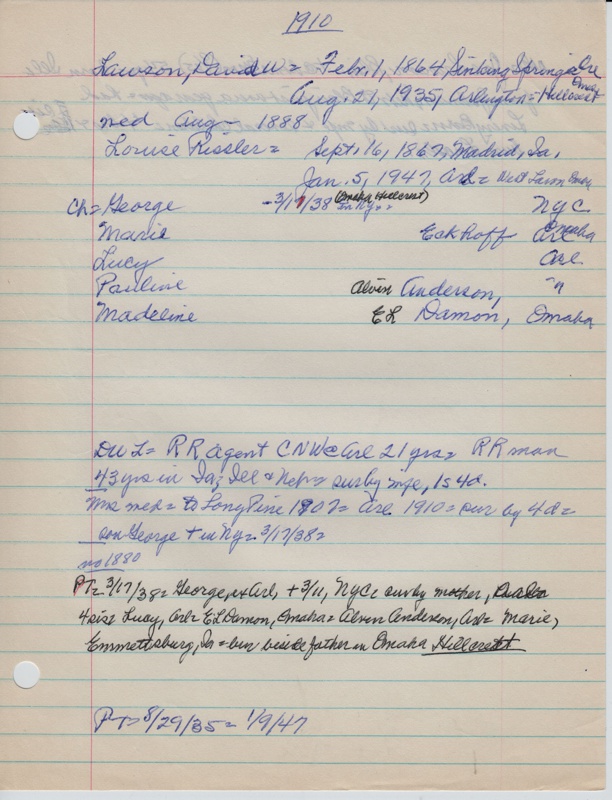 1910
Lawson, David W = Febr. 1, 1864, Sinking Springs
Aug. 21, 1935, Arlington = Hillcrest Omaha
med Aug - 1888
Louise Rissler = Sept. 16, 1867, Madrid, Ia,
Jan. 5, 1947, Arl = West Lawn Omaha
Ch = George - 3/17/38 (Omaha Hillcrest) in Ny = NYC
Marie Eckhoff Omaha
Lucy Arl.
Pauline Alvin Anderson, " "
Madeline E L Damon, Omaha
DWL = RR agent CNW @ Arl 21 yrs = RR man
43 yrs in Ia, Ill & Nebr = sur by wife, 1s 4d.
Mrs med = to Long Pine 1907 = Arl 1910 = sur by 4d =
son George + in Ny = 3/17/38 =
no 1880
PT = 3/17/38 = George, ex Arl, + 3/11, NYC = sur by mother,
4 sis = Lucy, Arl = E L Damon, Omaha = Alvin Anderson, Arl = Marie,
Emmettsburg, Ia = bur beside father in Omaha Hillcrest
PT = 8/29/35 = 1/9/47